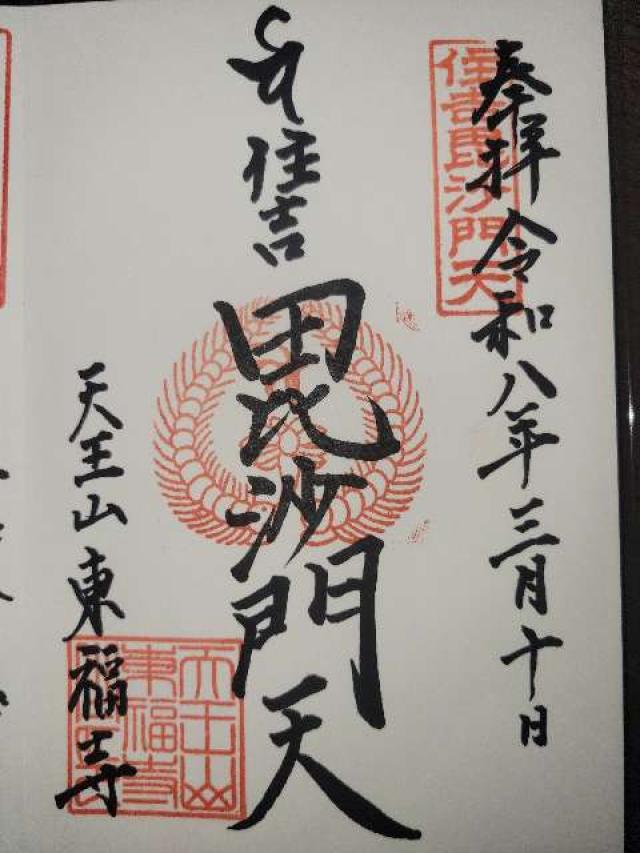 奉拝 令和八年三月十日
住吉毘沙門天
住吉
毘沙門天
天王山東福寺
天王山
東福寺